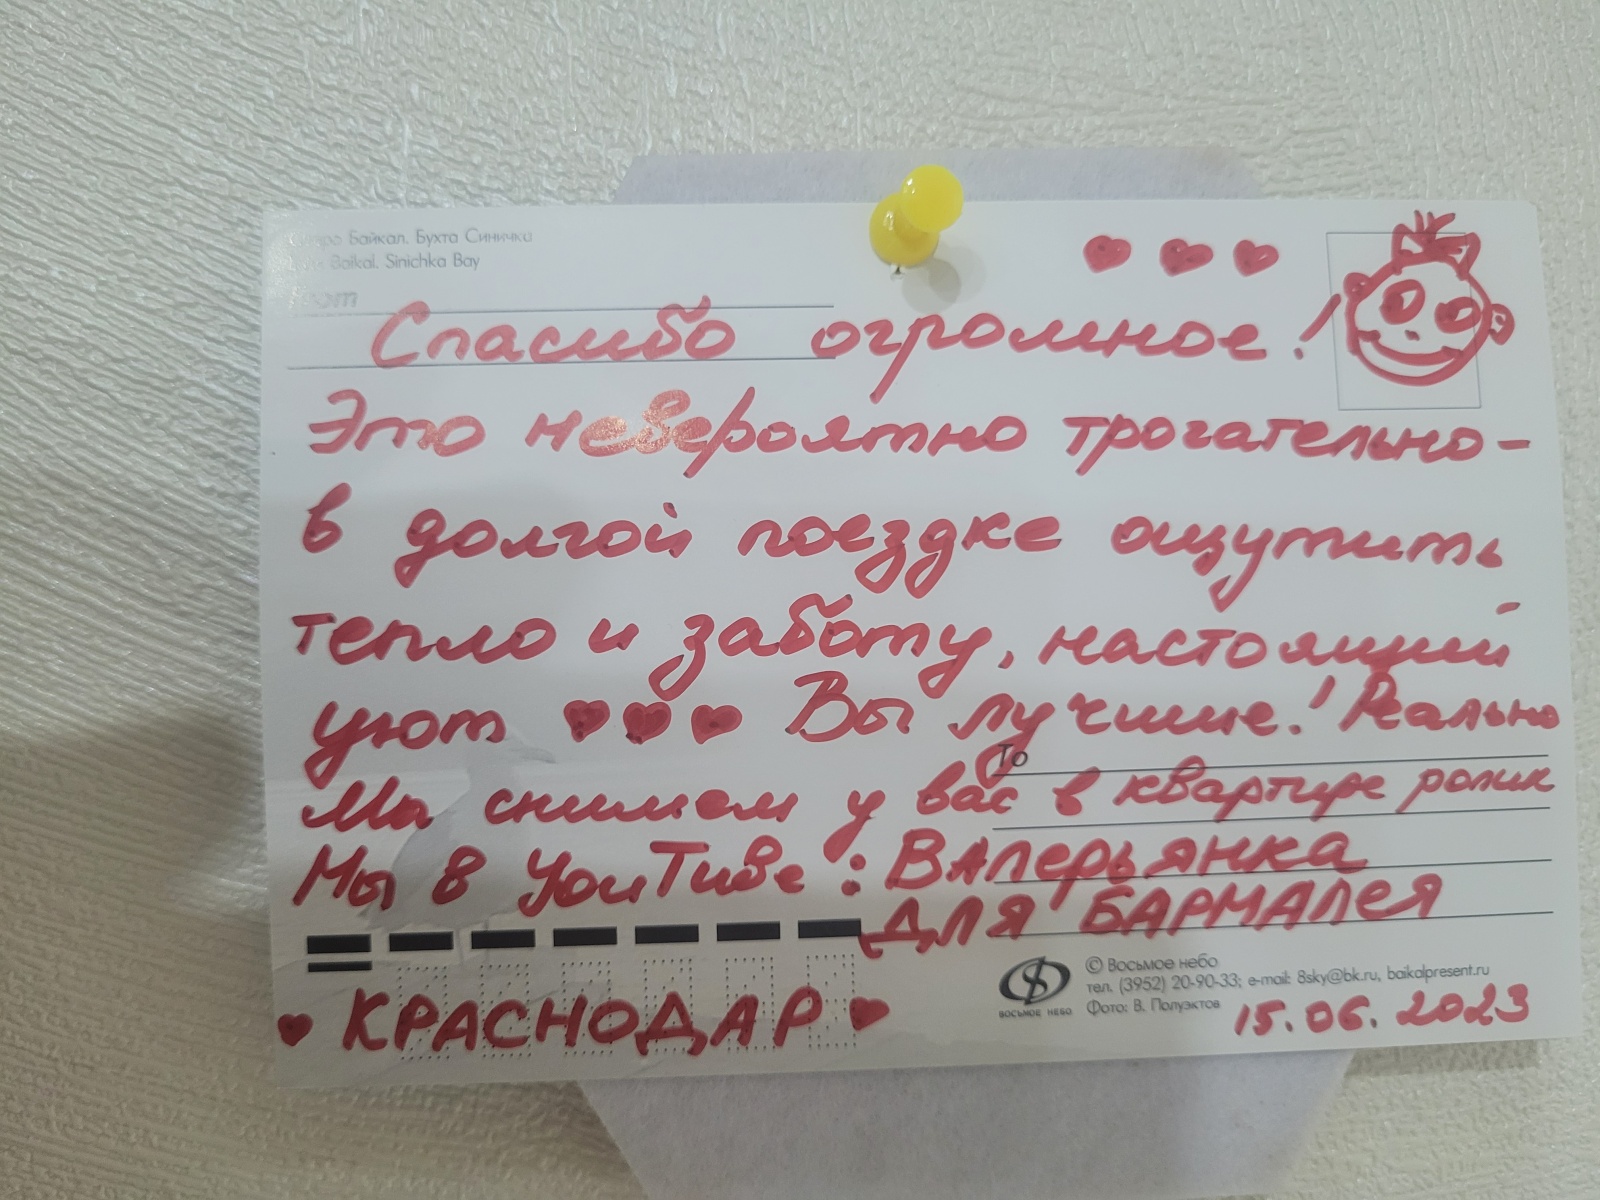 Байкал. Бухта Синичка
Baikal. Sinichka Bay
Спасибо огромное!
Это невероятно трогательно-
в долгой поездке ощутить
тепло и заботу, настоящий
уют Вы лучшие! Реально
То
Мы снимаем у вас в квартире ролик
Мы в YouTube: ВАлерьянка
для БАРМАЛея
© Восьмое небо
тел. (3952) 20-90-33; e-mail: 8sky@bk.ru, baikalpresent.ru
ВОСЬМОЕ НЕБО
Фото: В. Полуэктов
КРАСНОДАР
15.06.2023